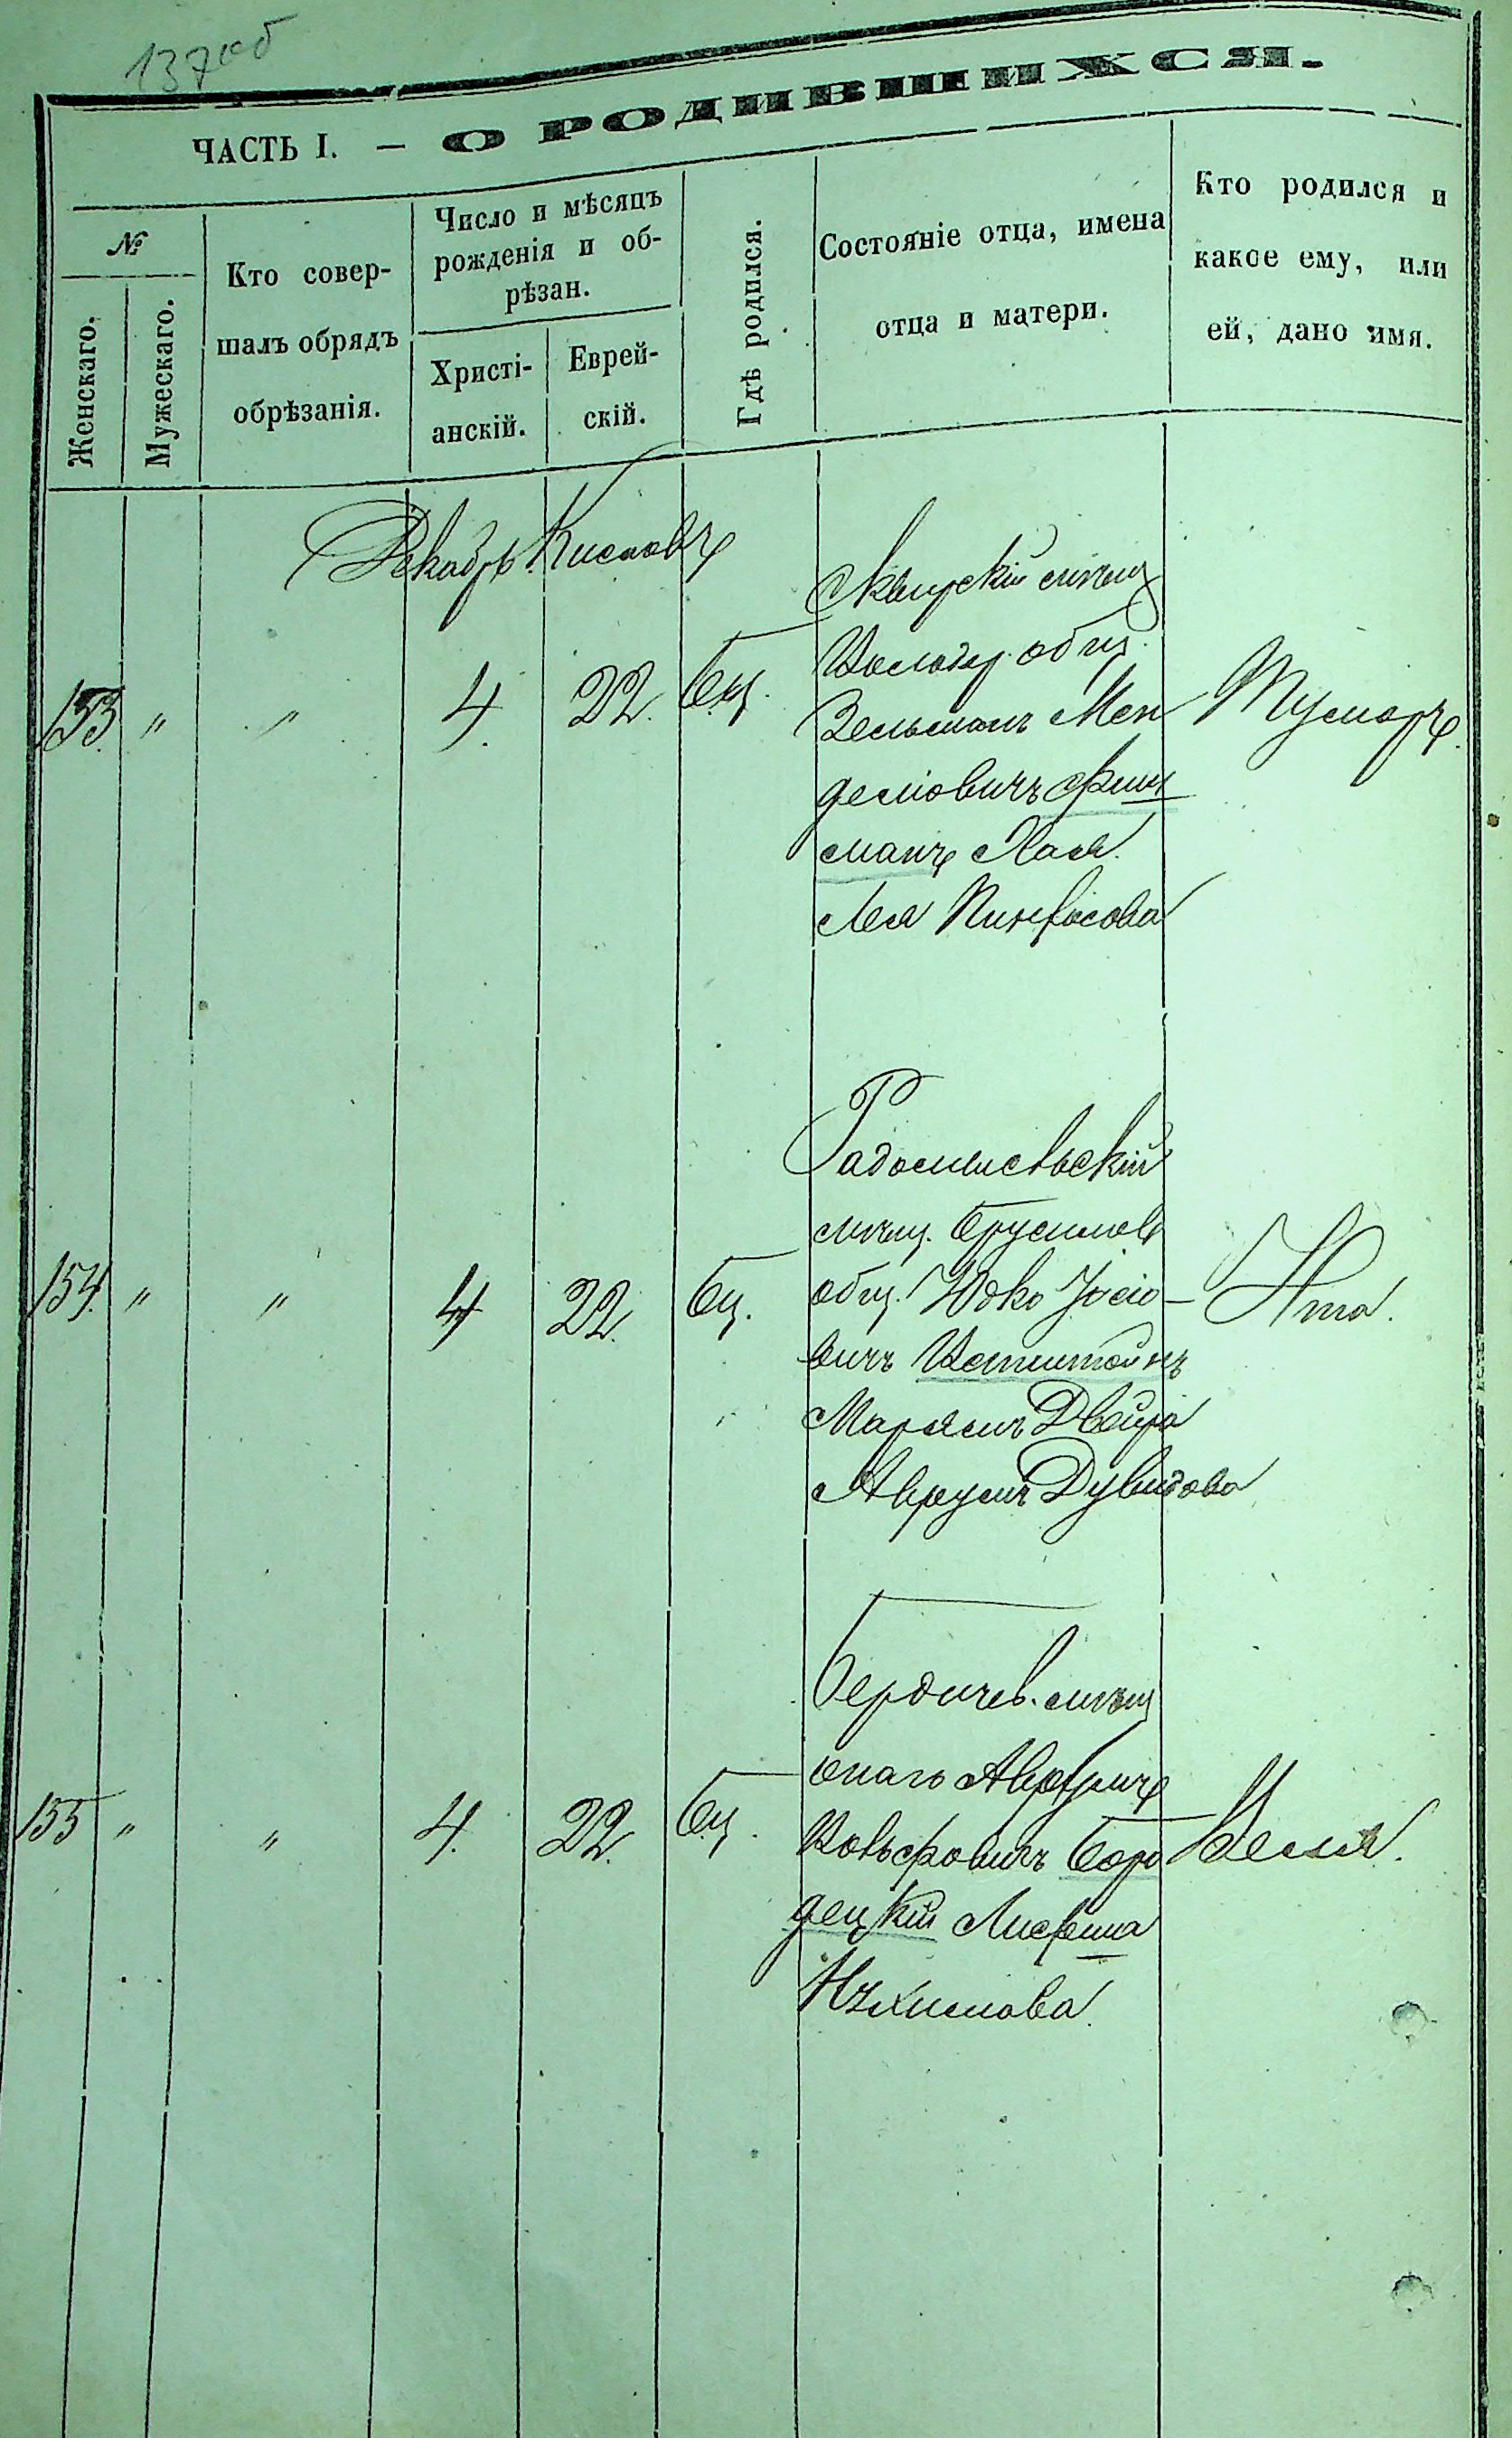 137об
ЧАСТЬ I. — О РОДИВШИХСЯ.
№
Женскаго.
Мужескаго.
Кто совер-
шалъ обрядъ
обрѣзанія.
Число и мѣсяцъ
рожденія и об-
рѣзан.
Христі-
анскій.
Еврей-
скій.
Гдѣ родился.
Состоянiе отца, имена
отца и матери.
Кто родился и
какое ему, или
ей, дано имя.
Декабрь Кислевъ
153 " " 4. 22. Бц.
Сквирскій мѣщ
Володар. общ.
Зельманъ Мен
деліовичъ Фиш
манъ Хая
Лея Пинхасова
154. " " 4 22. Бц.
Радомысльскій
мѣщ. Брусилов
общ. Юдко Іосіо
вичъ Ватштейнъ
Марьямъ Двейра
Аврумъ Дувидова
Ита.
155 " " 4. 22. Бц.
Бердичев. мѣщ
онаго Аврумъ
Вольфовичъ Бори
децкій
Нухимова.